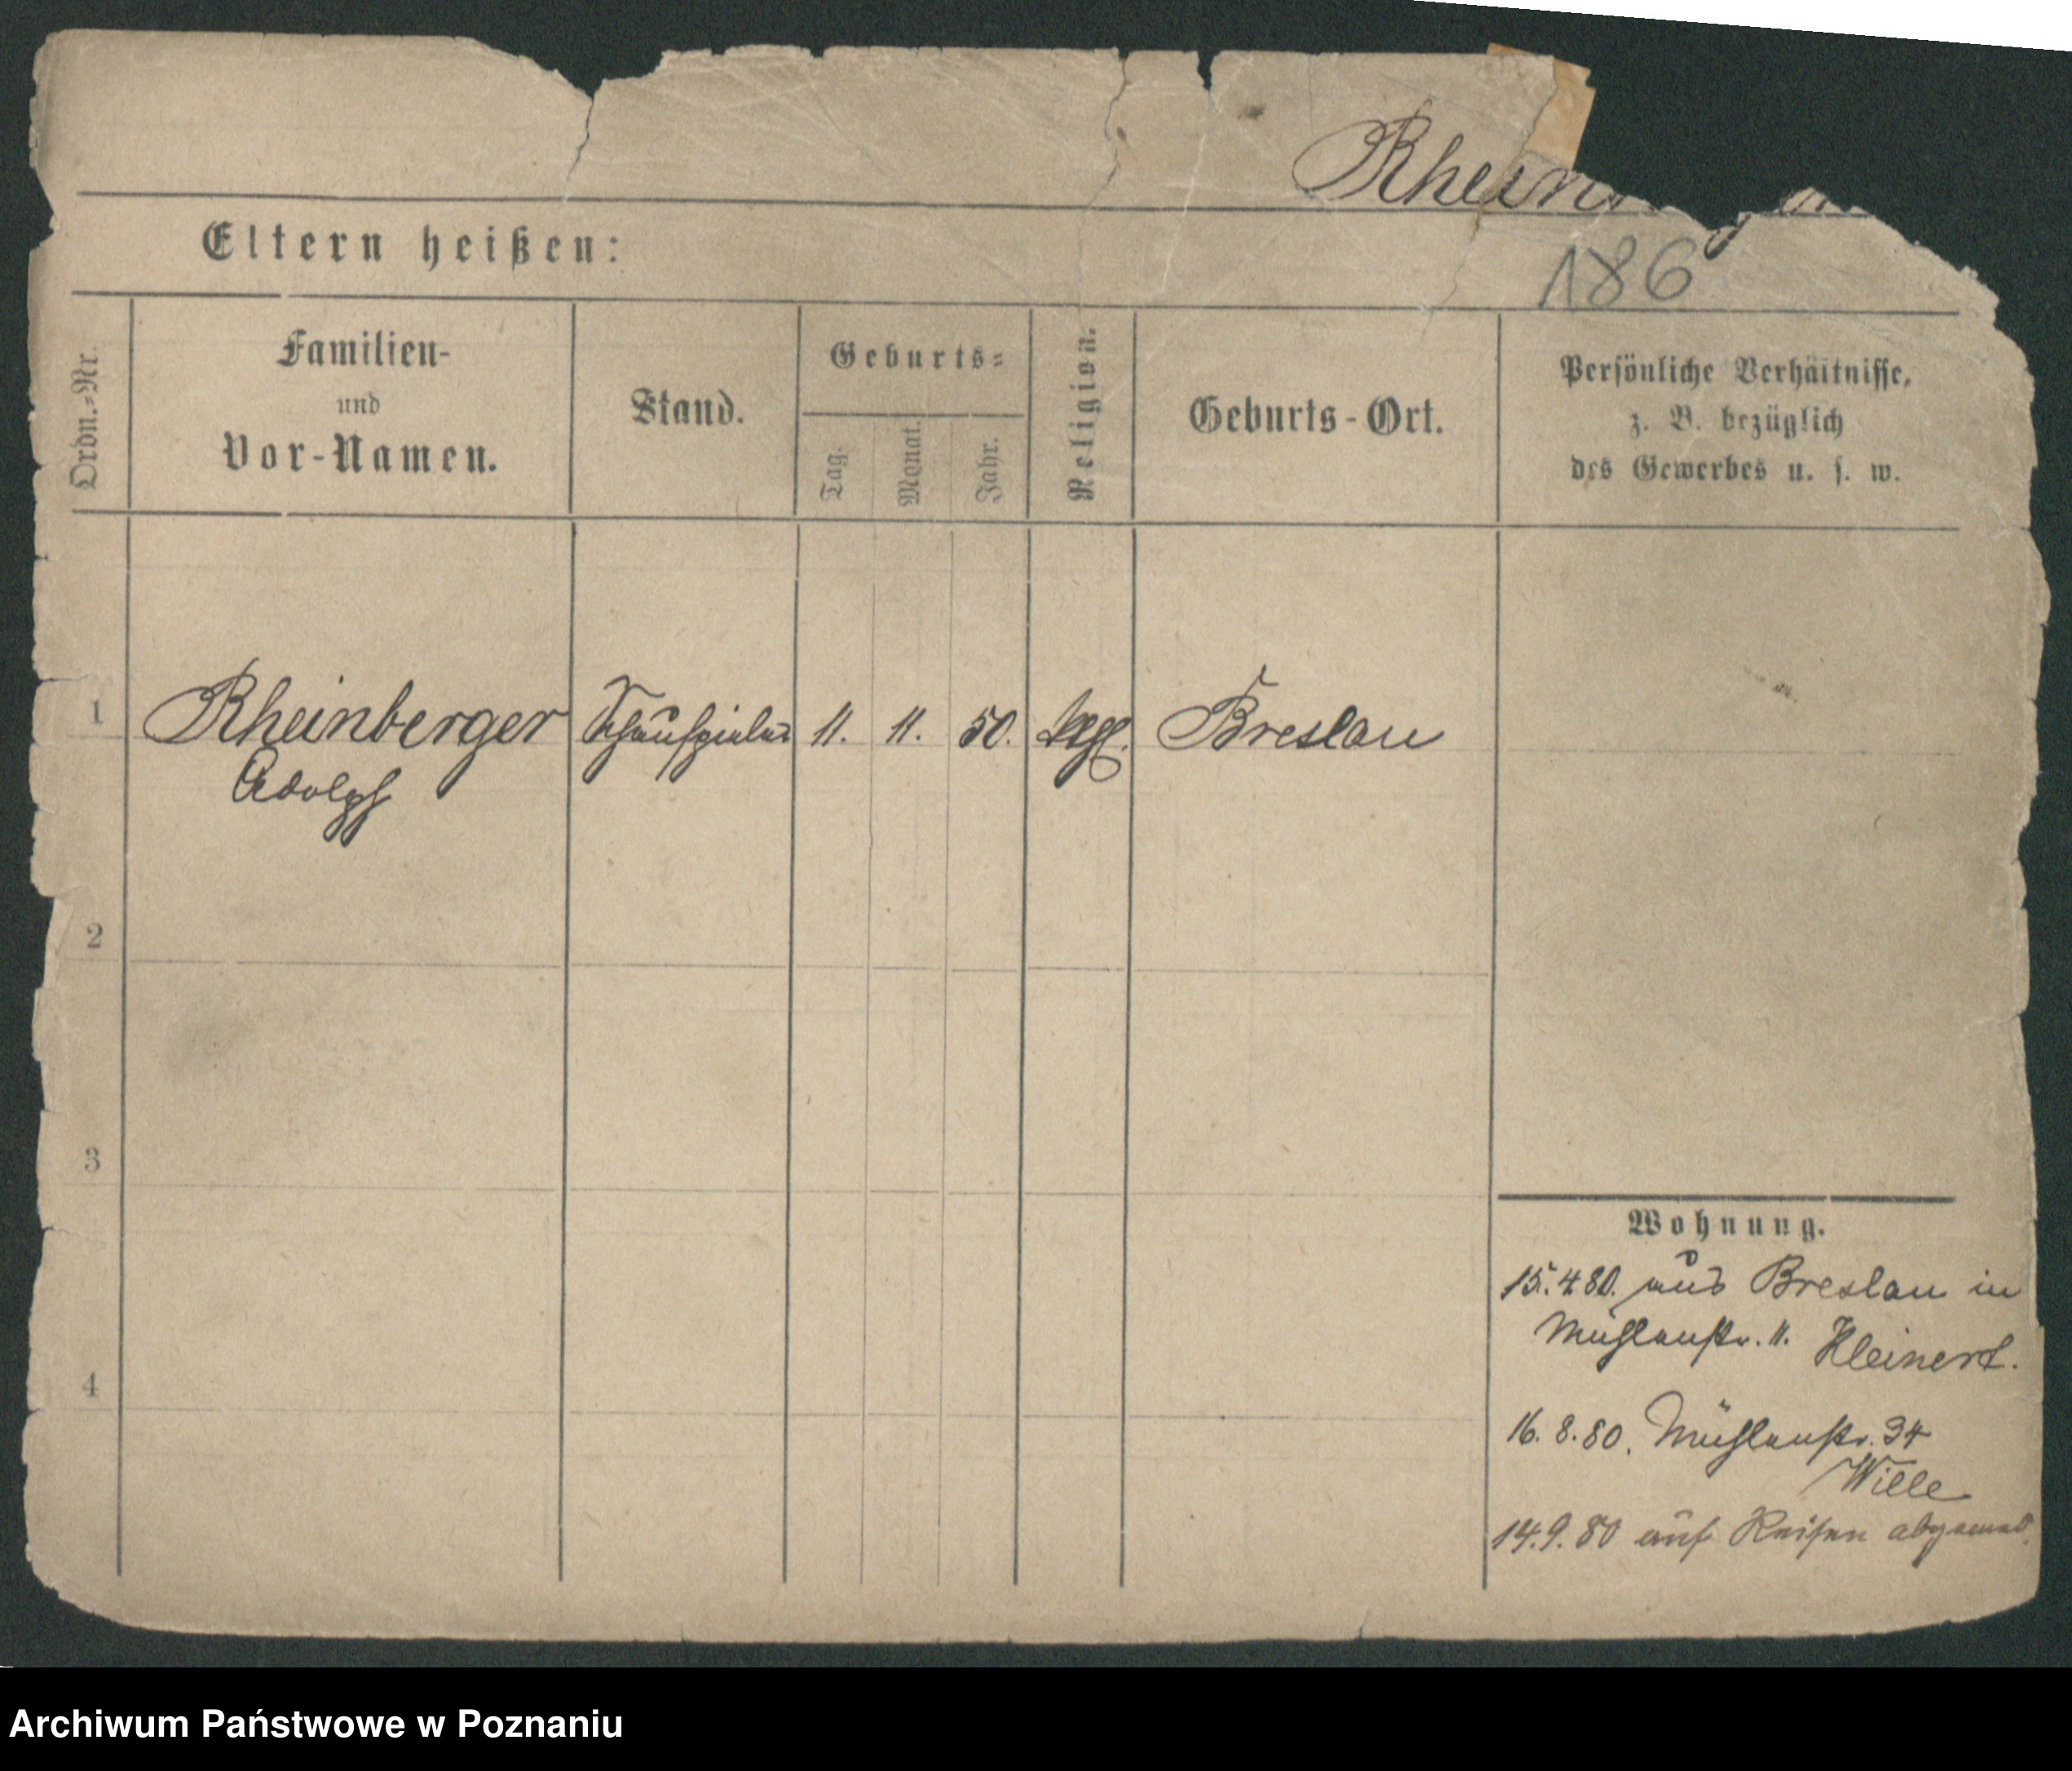 Rhein
Eltern heißen:
186
Ordn.=Nr.
Familien-
und
Vor-Namen.
Stand.
Geburts=
Tag.
Monat.
Jahr.
Religion.
Geburts-Ort.
Persönliche Verhältnisse,
z. B. bezüglich
des Gewerbes u. s. w.
1
Rheinberger
Adolph
Schauspieler
11.
11.
50.
Breslau
2
3
4
Wohnung.
15.4.80. aus Breslau in
Mühlenstr. 11. Kleinert.
16. 8. 80. Mühlenstr. 34
Wille
14.9.80 auf Reisen abgemeld.
Archiwum Państwowe w Poznaniu